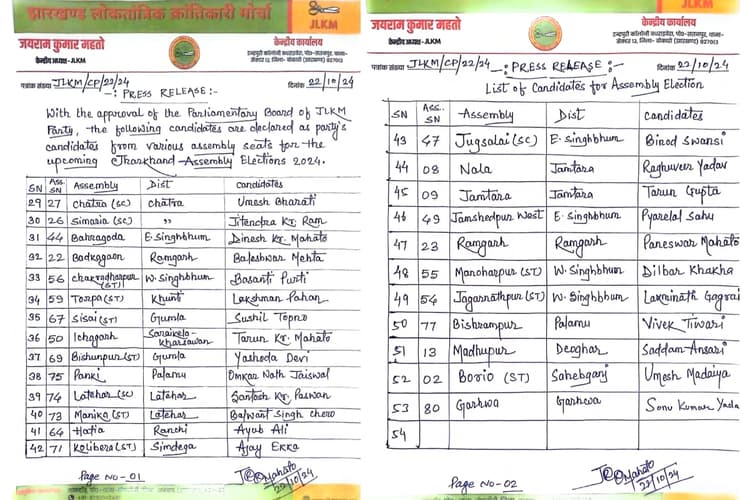 झारखण्ड लोकतांत्रिक क्रांतिकारी मोर्चा
JLKM
जयराम कुमार महतो
केन्द्रीय अध्यक्ष-JLKM
केन्द्रीय कार्यालय
पत्रांक संख्या JLKM/CP/22/24
दिनांक 22/10/24
-: PRESS RELEASE:-
With the approval of the Parliamentary Board of JLKM
Party, the following candidates are declared as party's
candidates from various assembly seats for the
upcoming Jharkhand Assembly Elections 2024.
SN Ass. SN Assembly Dist Candidates
29 27 Chatra (SC) Chatra Umesh Bharati
30 26 Simaria (SC) " Jitendra Kr. Ram
31 44 Bahragoda E. Singhbhum Dinesh Kr. Mahato
32 22 Badkagaon Ramgarh Baleshwar Mehta
33 56 Chakradharpur (ST) W. Singhbhum Basanti Purti
34 59 Torpa (ST) Khunti Lakshman Pahan
35 67 Sisai (ST) Gumla Sushil Topno
36 50 Ichagarh Saraikela-Kharsawan Tarun Kr. Mahato
37 69 Bishunpur (ST) Gumla Yashoda Devi
38 75 Panki Palamu Omkar Nath Jaiswal
39 74 Latehar (SC) Latehar Santosh Kr. Paswan
40 73 Manika (ST) Latehar Balwant Singh Chero
41 64 Hatia Ranchi Ayub Ali
42 71 Kolibera (ST) Simdega Ajay Ekka
Page No-01
22/10/24
JLKM
जयराम कुमार महतो
केन्द्रीय अध्यक्ष-JLKM
केन्द्रीय कार्यालय
पत्रांक संख्या JLKM/CP/22/24
-: PRESS RELEASE:-
दिनांक 22/10/24
List of Candidates for Assembly Election
SN Ass. SN Assembly Dist Candidates
43 47 Jugsalai (SC) E. Singhbhum Binod Swansi
44 08 Nala Jamtara Raghuveer Yadav
45 09 Jamtara Jamtara Tarun Gupta
46 49 Jamshedpur West E. Singhbhum Pyarelal Sahu
47 23 Ramgarh Ramgarh Paneswar Mahato
48 55 Manoharpur (ST) W. Singhbhum Dilbar Khakha
49 54 Jagarnathpur (ST) W. Singhbhum Laxminath Gagrai
50 77 Bishrampur Palamu Vivek Tiwari
51 13 Madhupur Deoghar Saddam Ansari
52 02 Borio (ST) Sahebganj Umesh Madaiya
53 80 Garhwa Garhwa Sonu Kumar Yada
54
Page No-02
22/10/24